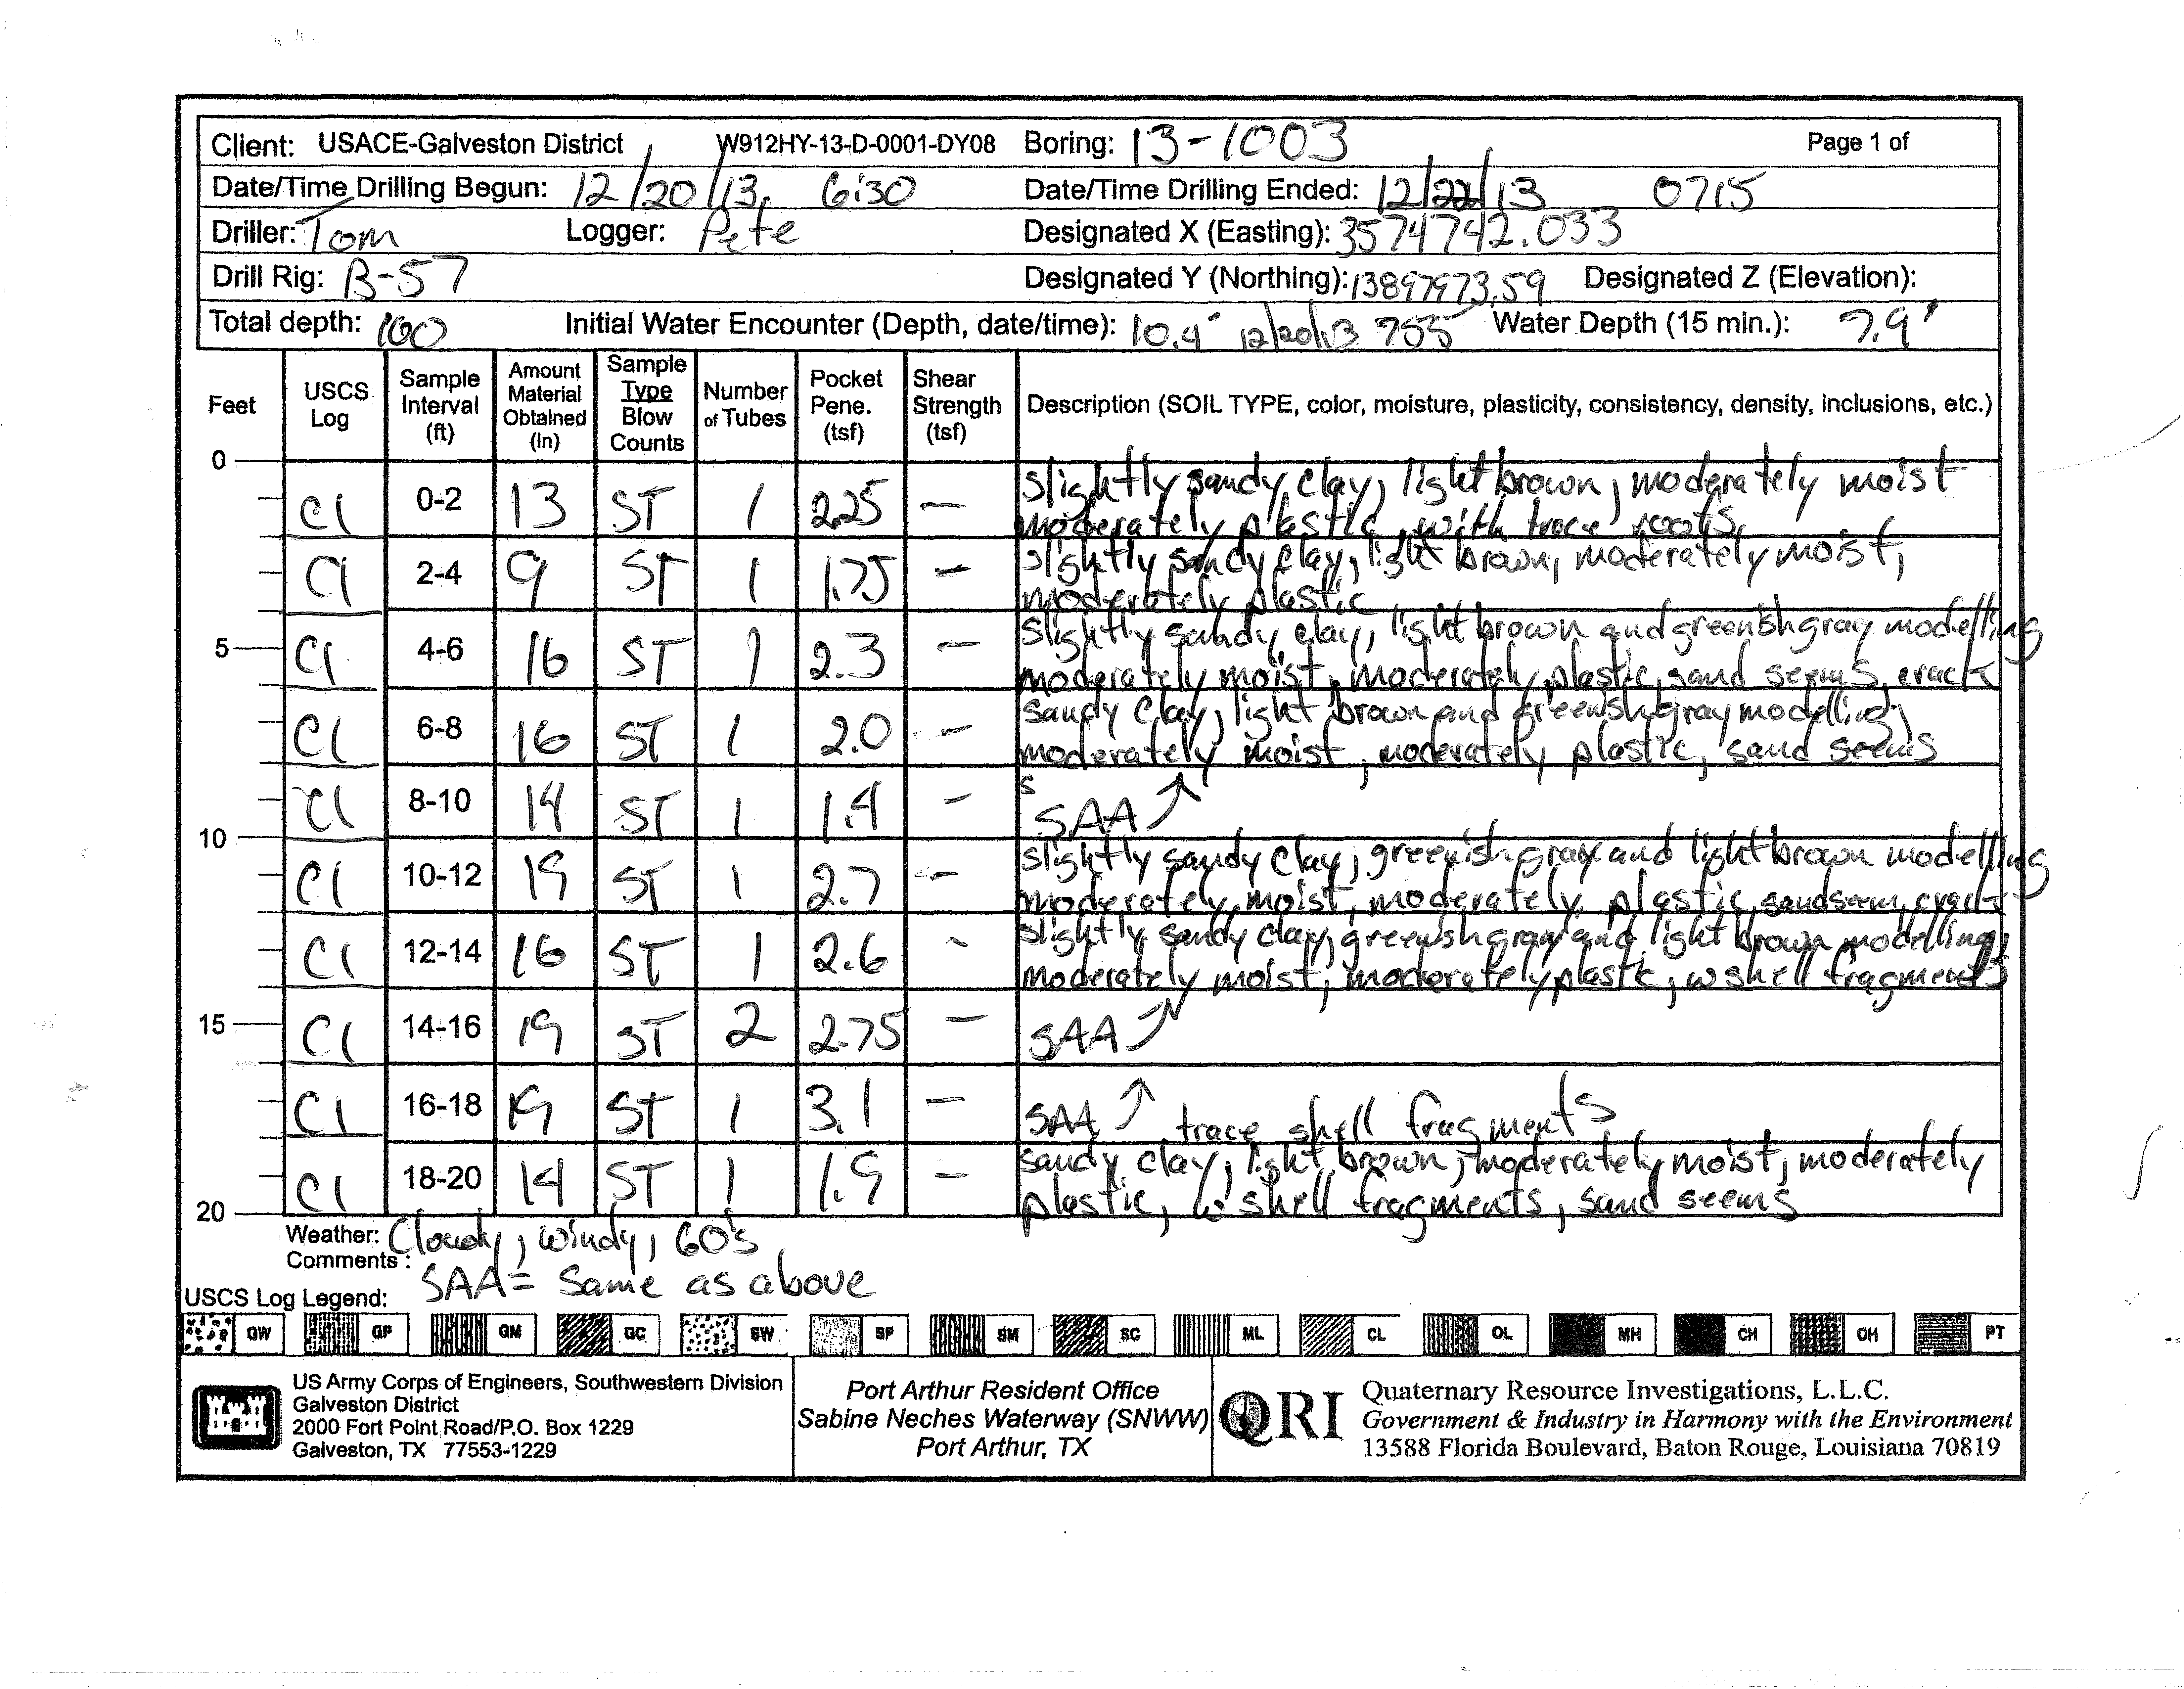 Client: USACE-Galveston District W912HY-13-D-0001-DY08 Boring: 13-1003 Page 1 of
Date/Time Drilling Begun: 12/20/13, 6:30 Date/Time Drilling Ended: 12/22/13 0715
Driller: Tom Logger: Pete Designated X (Easting): 3574742.033
Drill Rig: B-57 Designated Y (Northing): 13897973.59 Designated Z (Elevation):
Total depth: 100 Initial Water Encounter (Depth, date/time): 10.4' 12/20/13 755 Water Depth (15 min.): 7.9'
Feet USCS Log Sample Interval (ft) Amount Material Obtained (in) Sample Type Blow Counts Number of Tubes Pocket Pene. (tsf) Shear Strength (tsf) Description (SOIL TYPE, color, moisture, plasticity, consistency, density, inclusions, etc.)
0
Cl 0-2 13 ST 1 2.25 – slightly sandy clay, light brown, moderately moist
moderately plastic, with trace roots
Cl 2-4 9 ST 1 1.75 – slightly sandy clay, light brown, moderately moist,
moderately plastic
5 Cl 4-6 16 ST 1 2.3 – slightly sandy clay, light brown and greenish gray modelling
moderately moist, moderately plastic, sand seems, crack
Cl 6-8 16 ST 1 2.0 – sandy clay, light brown and greenish gray modelling,
moderately moist, moderately plastic, sand seems
Cl 8-10 14 ST 1 1.4 – s
SAA ↑
10
Cl 10-12 19 ST 1 2.7 – slightly sandy clay, greenish gray and light brown modelling
moderately moist, moderately plastic, sand seem, crack
Cl 12-14 16 ST 1 2.6 - slightly sandy clay, greenish gray and light brown modelling,
moderately moist, moderately plastic, w shell fragments
15 Cl 14-16 19 ST 2 2.75 – SAA ↑
Cl 16-18 19 ST 1 3.1 – SAA ↑ trace shell fragments
Cl 18-20 14 ST 1 1.9 – sandy clay, light brown, moderately moist, moderately
plastic, w shell fragments, sand seems
20
Weather: Cloudy, windy, 60's
Comments: SAA= Same as above
USCS Log Legend:
GW GP GM GC SW SP SM SC ML CL OL MH CH OH PT
US Army Corps of Engineers, Southwestern Division
Galveston District
2000 Fort Point Road/P.O. Box 1229
Galveston, TX 77553-1229
Port Arthur Resident Office
Sabine Neches Waterway (SNWW)
Port Arthur, TX
QRI
Quaternary Resource Investigations, L.L.C.
Government & Industry in Harmony with the Environment
13588 Florida Boulevard, Baton Rouge, Louisiana 70819